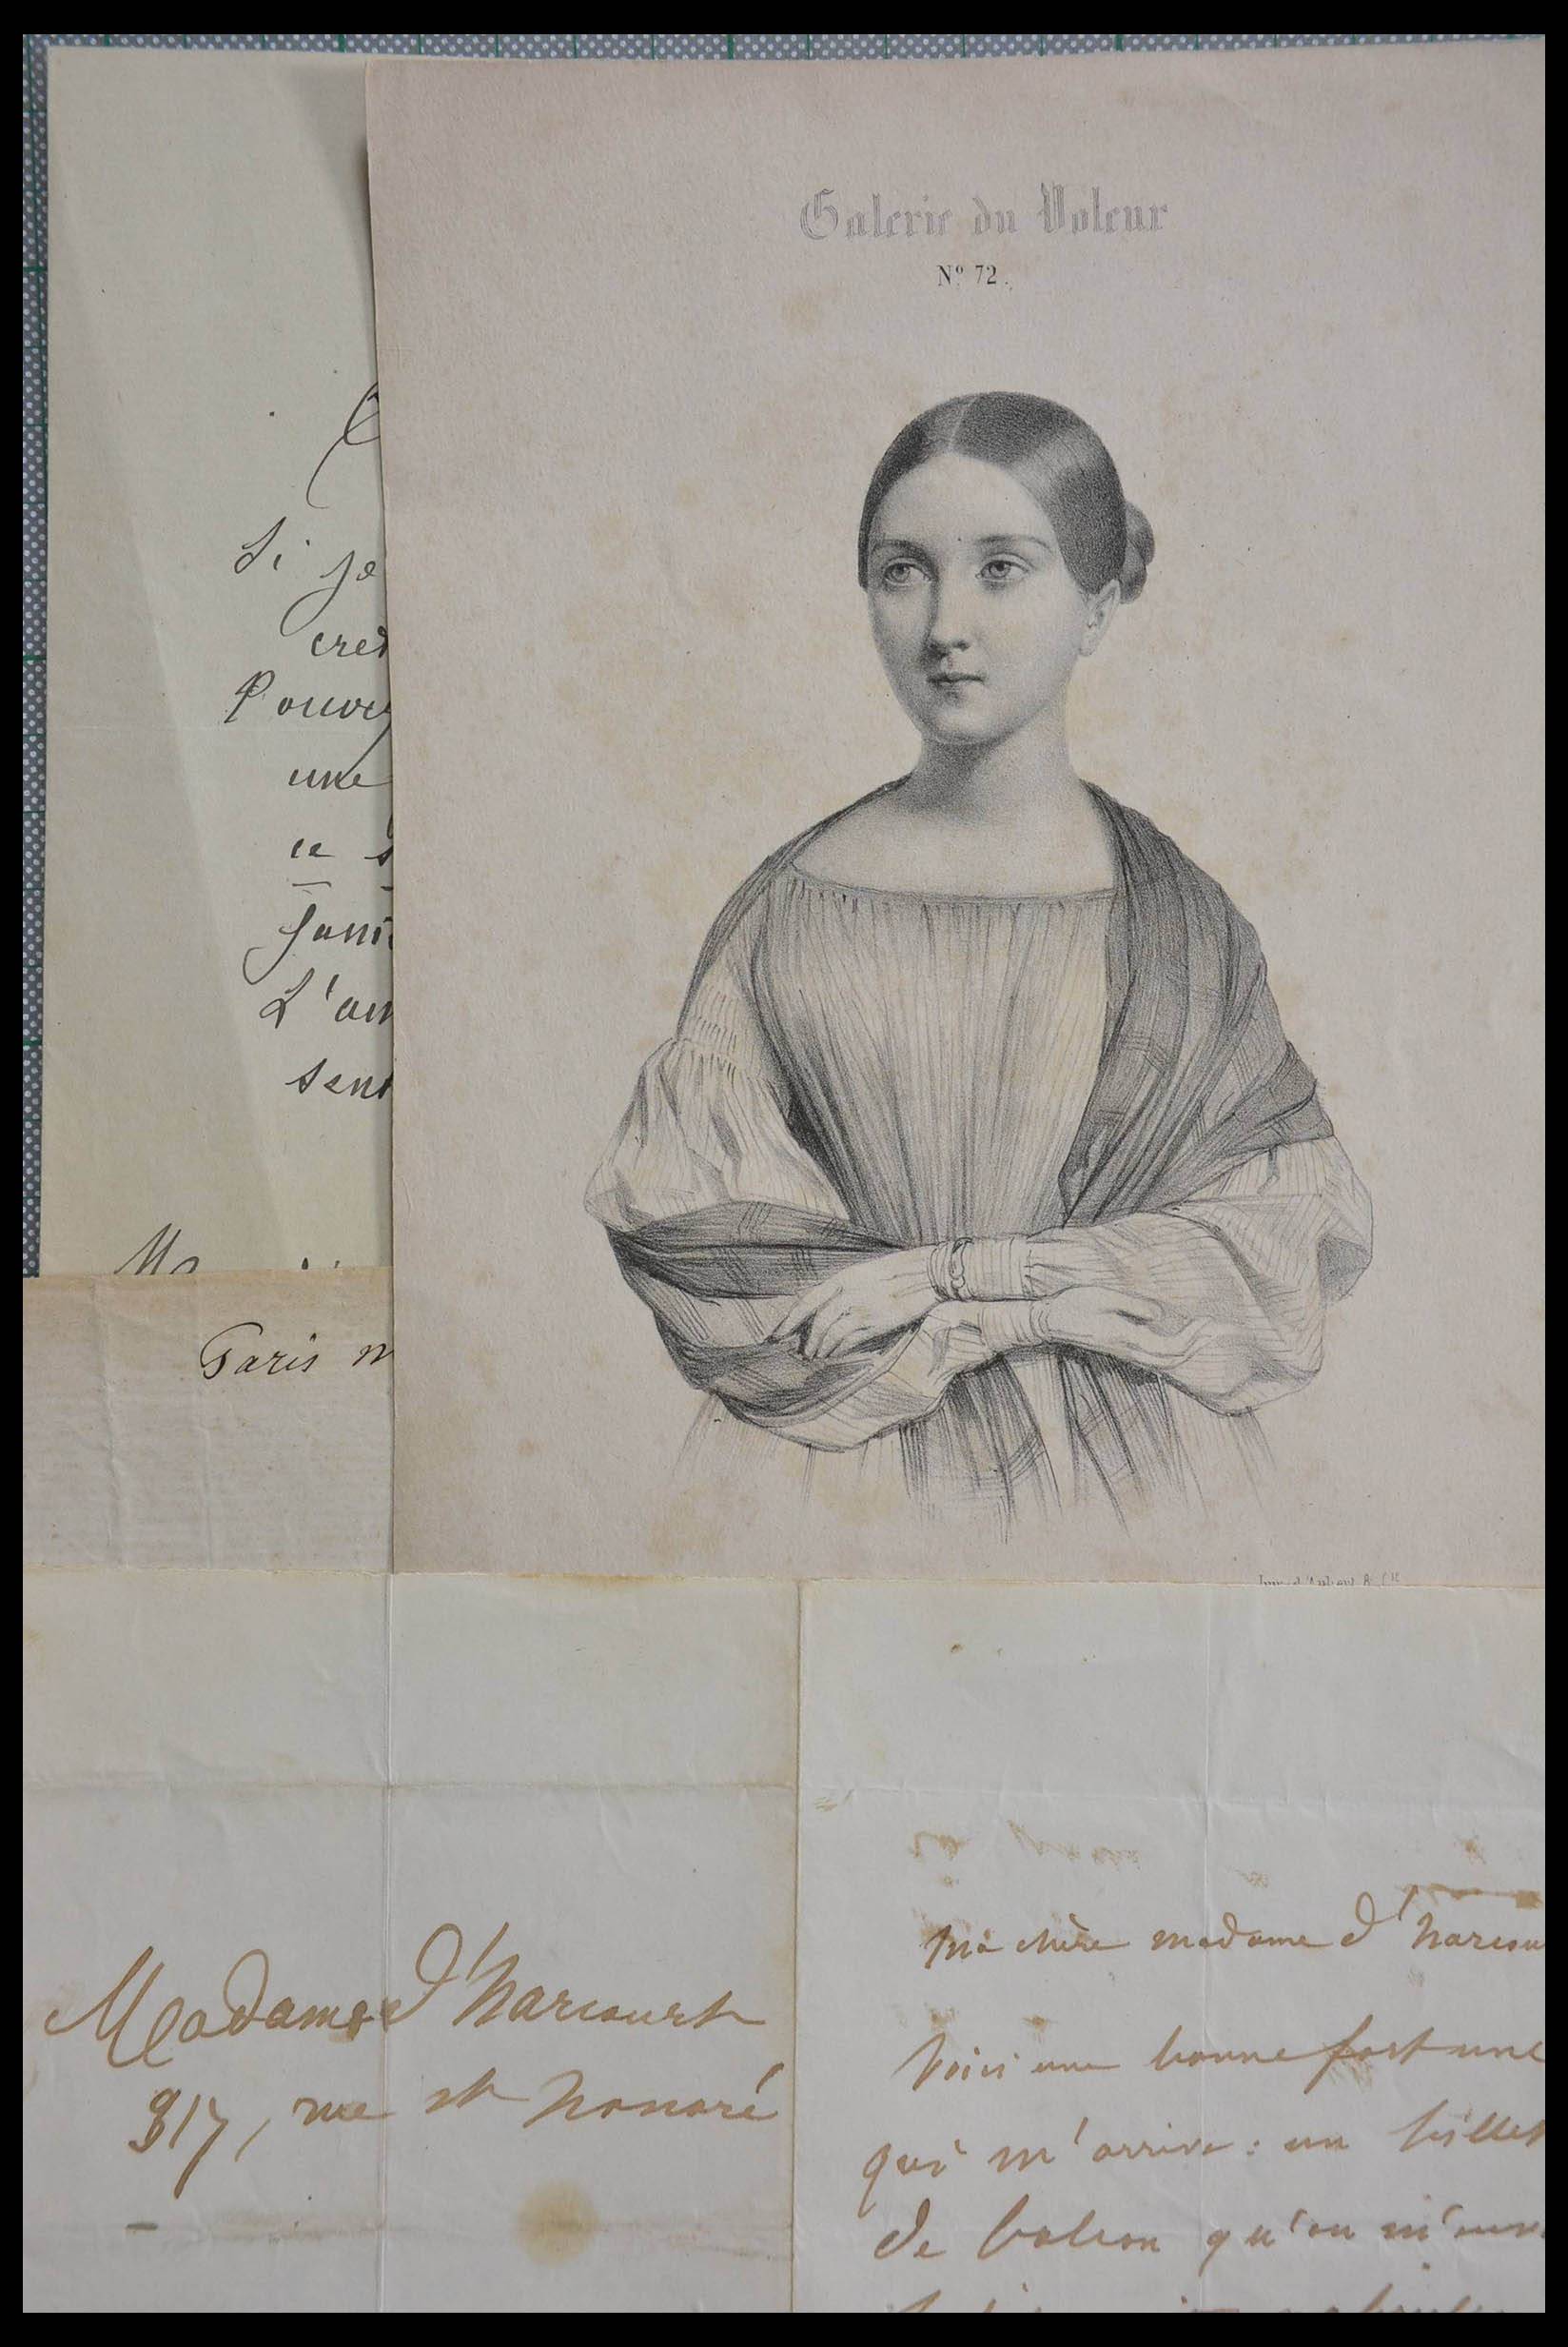 Galerie du Voleur
Nº 72.
Si je
une
ce
L'am
sent
Paris
Imp. d'Aubert & Cie
Madame d'harcourt
317, rue st honoré
ma chère madame d'harcou
Voici une bonne fortune
qui m'arrive : un billet
de balcon qu'on m'